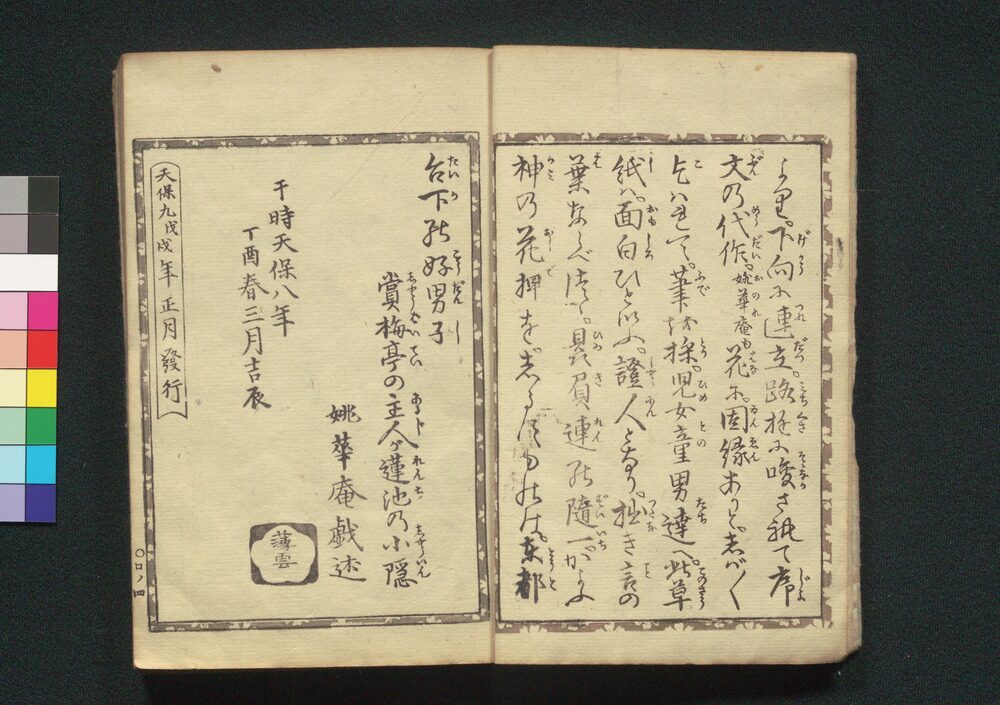 より下向に連立路挺に唆されて序
文の代作。姚華庵も花に。因縁あれど。しば〳〵
乞はれて。筆を採児女童男達へ。此草
紙は。面白ひといふ。證人となり。拙き言の
葉ならべつ。贔屓連の随一。かふ
神の花押を。しるすものは。東都
台下の好男子
賞梅亭の主人が蓮池の小隠
姚華庵戯述
薄雲
于時天保八年
丁酉春三月吉辰
天保九戊戌年正月發行
〇口ノ四